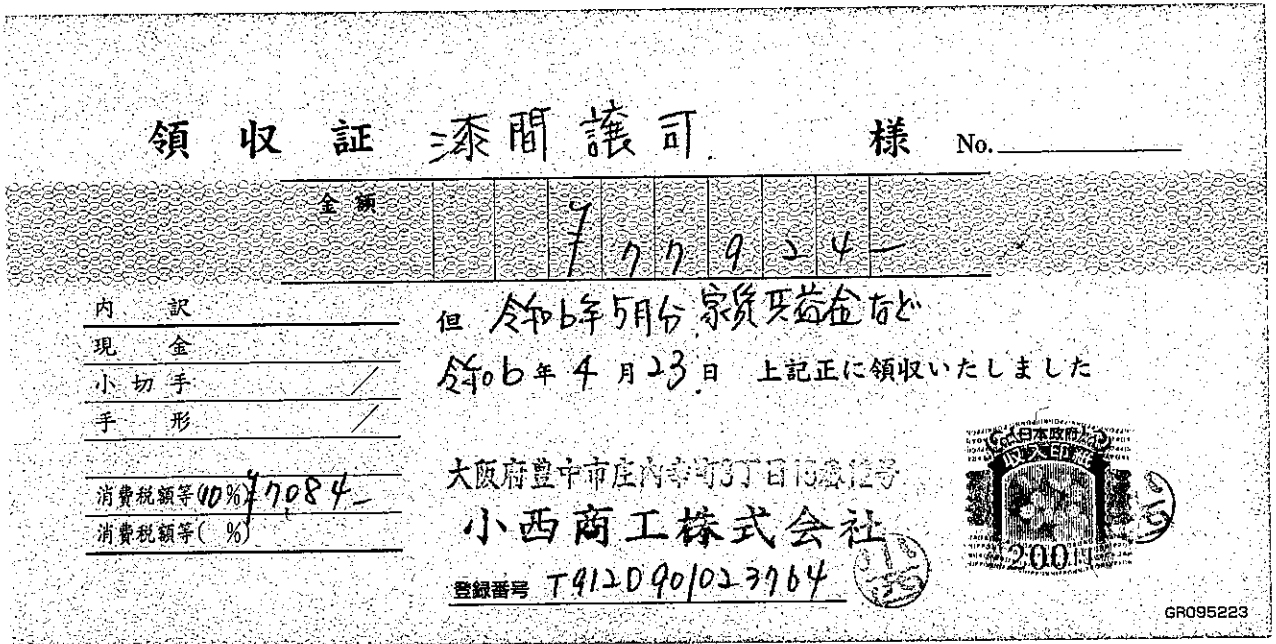 領収証 漆間譲司 様 No.
金額 ¥77924-
内訳
現金
小切手
手形
消費税額等(10%)¥7084-
消費税額等( %)
但 令和6年5月分 家賃共益金など
令和6年4月23日 上記正に領収いたしました
大阪府豊中市庄内幸町3丁目
小西商工株式会社
登録番号 T9120901023764
日本政府
収入印紙
200円
GR095223